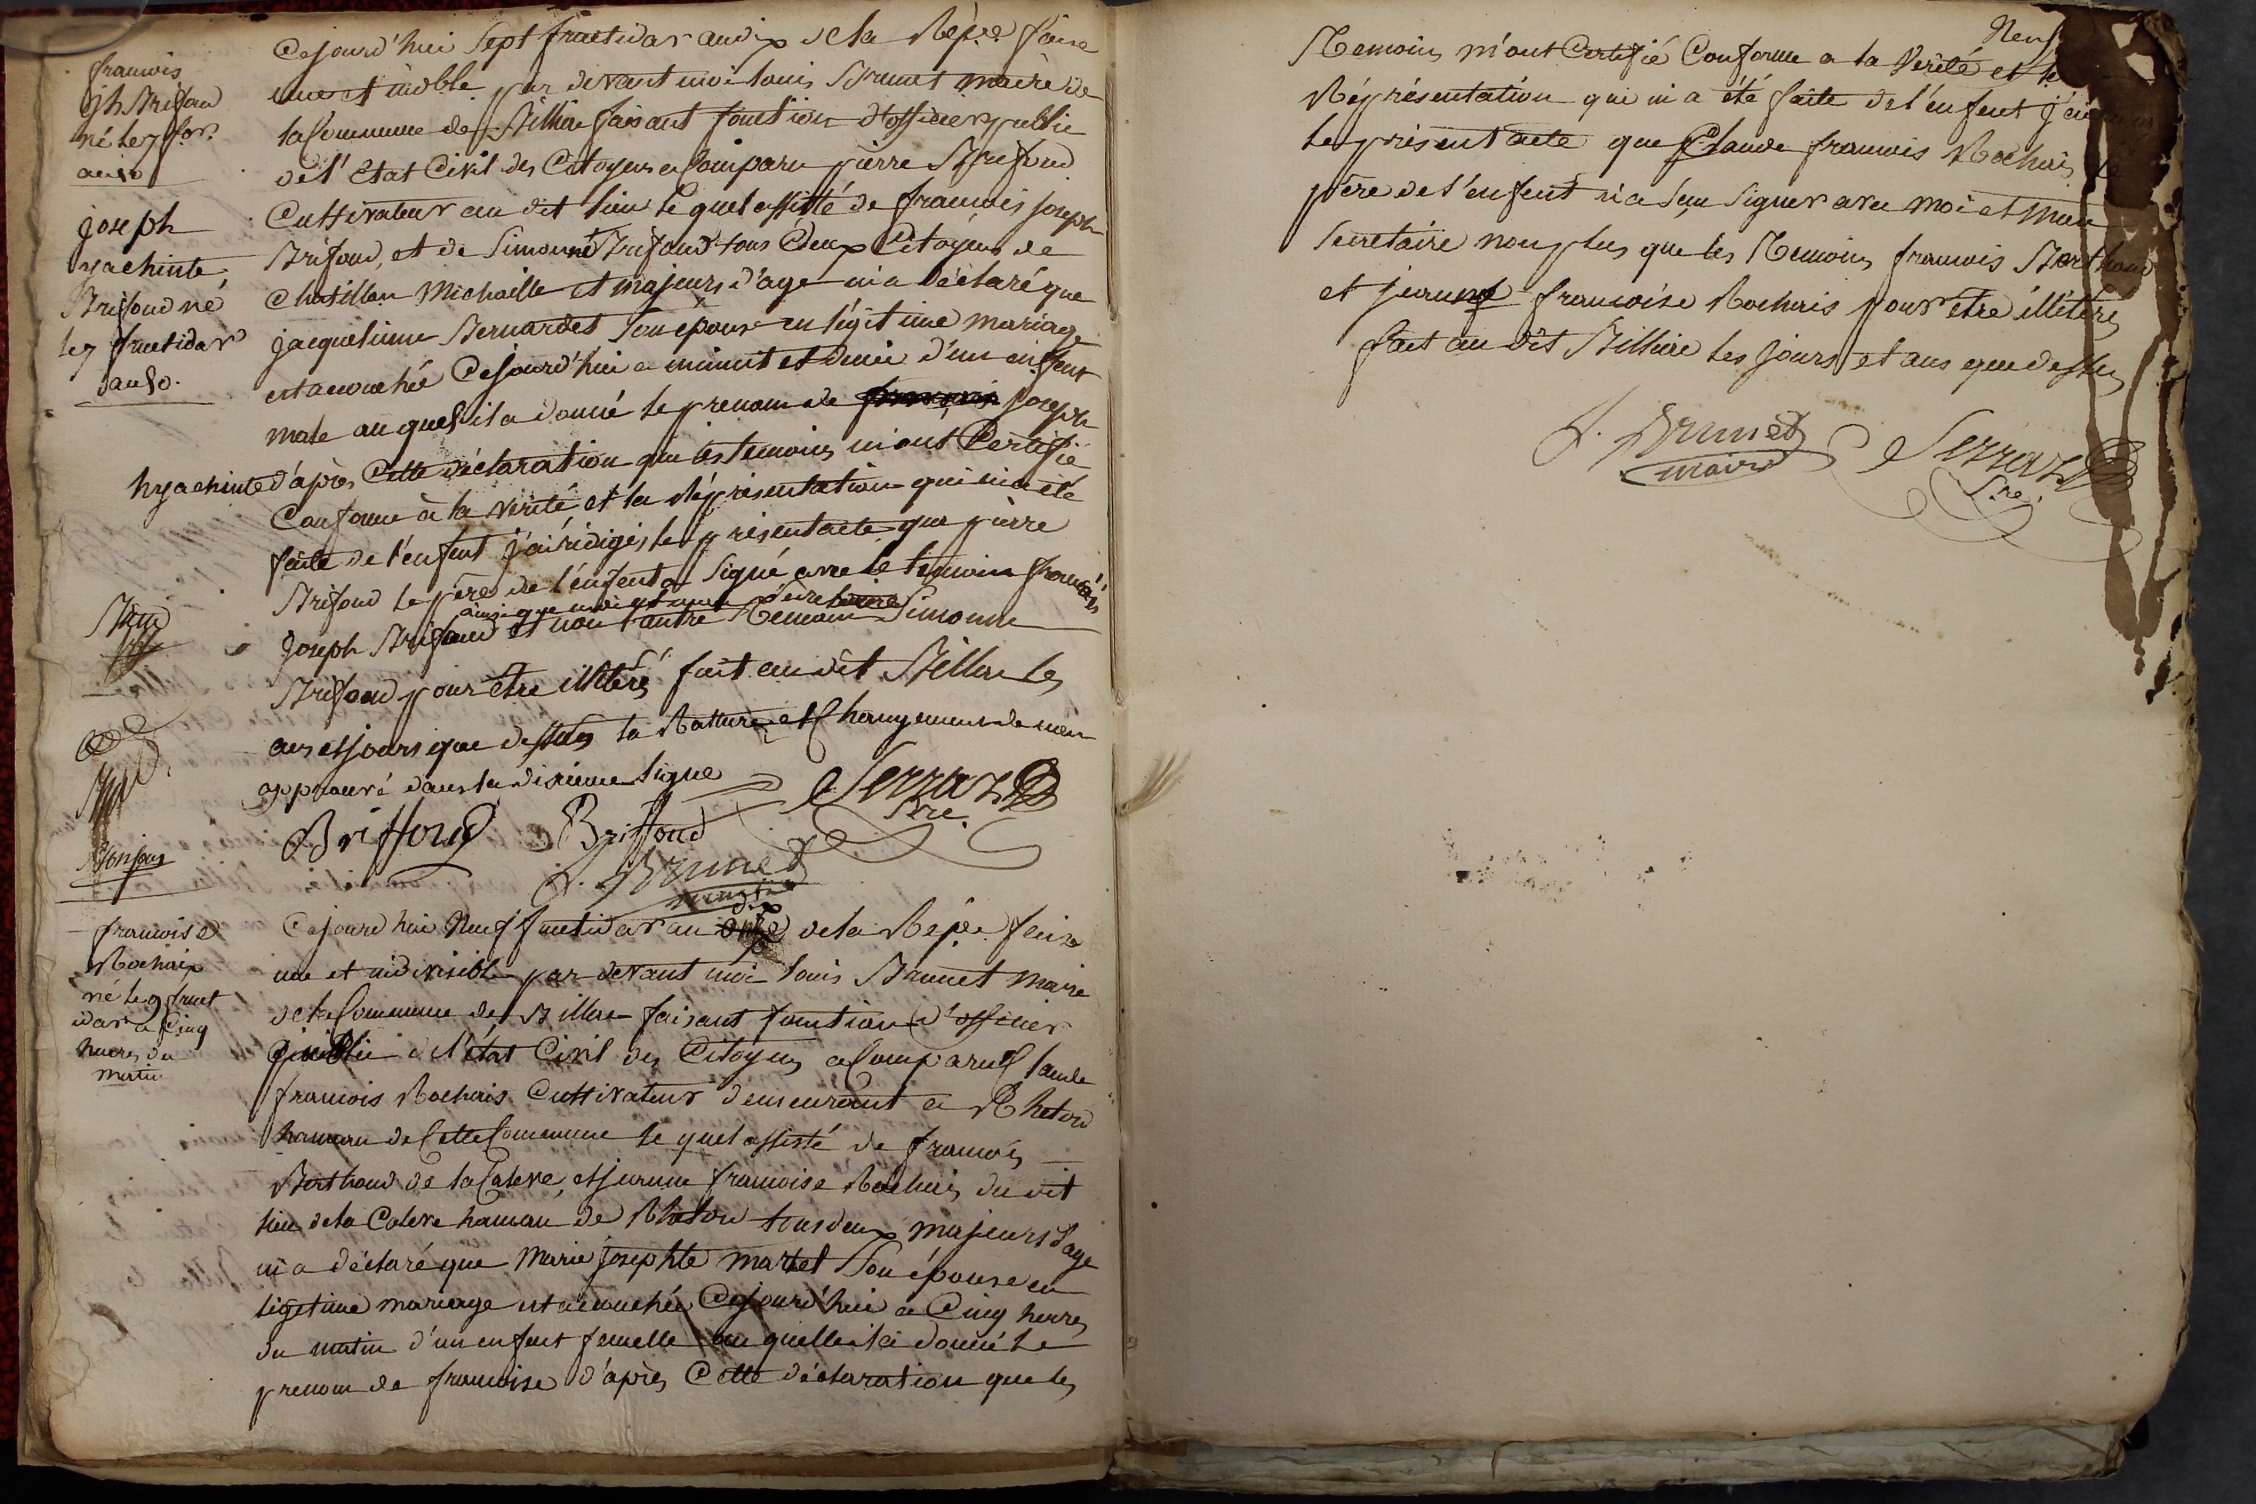 francois
jph Brifoud
né le 7 for.
an 10
joseph
yachinte
Brifoud né
le 7 fructidor
an 10.
Cejourd'hui sept fructidor an dix de la Répee. fçaise
une et indble par devant moi louis Brunet maire de
la Commune de Billia faisant fonction d'officier public
de l'Etat Civil des Citoyens a Comparu pierre Brifoud
Cultivateur au dit lieu le quel assisté de francois joseph
Brifoud, et de Simonne Brifoud tous deux Citoyens de
Chatillon Michaille et majeurs d'age m'a déclaré que
jacqueline Bernardet son épouse en légitime mariage
est acouchée Cejourd'hui a minuit et demie d'un enfent
male au quel il a donné le prenom de francois joseph
hyachinte d'après Cette déclaration que les temoins m'ont Certifié
Conforme à la verité et la répresentation qui m'a été
faite de l'enfent j'ai rédigés le présent acte que pierre
Brifoud le père de l'enfent a Signé avec le temoin francois
ainsi que moi et mon sécretaire
joseph Brifoud et non l'autre Temoin Simonne
Brifoud pour être illiterés fait au dit Billia les
ans et jours que dessus la Rature et Changement de nom
approuvé dans la dixieme ligne
Briffoud Briffoud Serraz
Sre.
L. Brunet
maire
francoise
Rochaix
né le 9 fruct
idor a Cinq
heures du
matin
dix
Cejourd'hui Neuf fructidor an onze de la Répee. fçaise
une et indivisible par devant moi louis Brunet maire
de la Commune de Billia faisant fonction d'officier
publie de l'état Civil des Citoyens a Comparu Claude
francois Rochais Cultivateur demeurant a Rhetord
hameau de Cette Commune le quel assisté de francois
Berthoud de la Caleve, et jeanne francoise Rochais du dit
lieu de la Caleve hameau de Rhetord tous deux majeurs d'age
m'a déclaré que Marie josephte martel Son épouse en
ligetime mariage est acouchée Cejourd'hui a Cinq heures
du matin d'un enfent femelle au quelle il a donné le
prenom de francoise d'après Cette déclaration que les
Neuf
Temoins m'ont Certifié Conforme a la Verité et la
Répresentation qui m'a été faite de l'enfent j'ai
le présent acte que Claude francois Rochais le
père de l'enfent n'a seu signer avec moi et mon
Secretaire non plus que les Temoins francois Berthoud
et jeanne francoise Rochais pour etre illiterés
fait au dit Billia les jours et ans que dessus
L. Brunet Serraz
maire Sre.